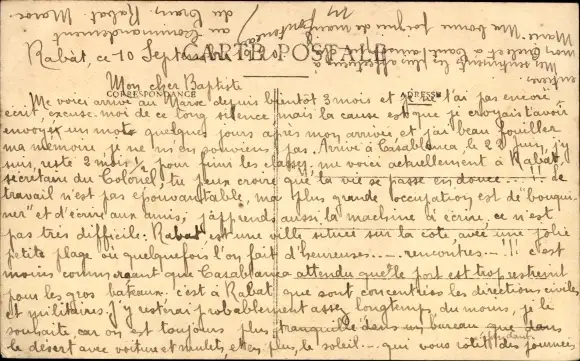 CARTE POSTALE
CORRESPONDANCE
ADRESSE
Rabat, ce 10 Septembre
Mon cher Baptiste
Me voici arrivé au Maroc depuis bientôt 3 mois et je ne t'ai pas encore
écrit, excuse-moi de ce long silence mais la cause est que je croyais t'avoir
envoyer un mot quelques jours après mon arrivée, et j'ai beau fouiller
ma mémoire, je ne m'en souviens pas. Arrivé à Casablanca le 22 juin, j'y
suis resté 2 mois 1/2 pour finir les classes, me voici actuellement à Rabat,
secrétaire du Colonel, tu peux croire que la vie se passe en douce...!!! Le
travail n'est pas épouvantable, ma plus grande occupation est de "bouqui-
ner" et d'écrire aux amis; j'apprends aussi la machine à écrire, ce n'est
pas très difficile. Rabat est une ville située sur la côte, avec une jolie
petite plage où quelquefois l'on fait d'heureuses... rencontres...!!! c'est
moins commerçant que Casablanca attendu que le port est trop restreint
pour les gros bateaux. c'est à Rabat que sont concentrées les directions civiles
et militaires. j'y resterai probablement assez longtemps, du moins, je le
souhaite car on est toujours plus tranquille dans un bureau que dans
le désert avec voiture et mulets, et en plus, le soleil... qui vous rôtit des journées
entières.
Mes sentiments les plus affectueux à
mon oncle et à tante
Marie. Une bonne poignée de main
au Commandement
du Train, Rabat. Maroc